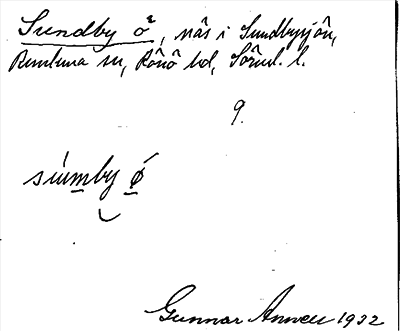 Sundby ö, näs i Sundbysjön,
Runtuna sn, Rönö hd, Södml. l.
9.
súmby ǿ
Gunnar 1932